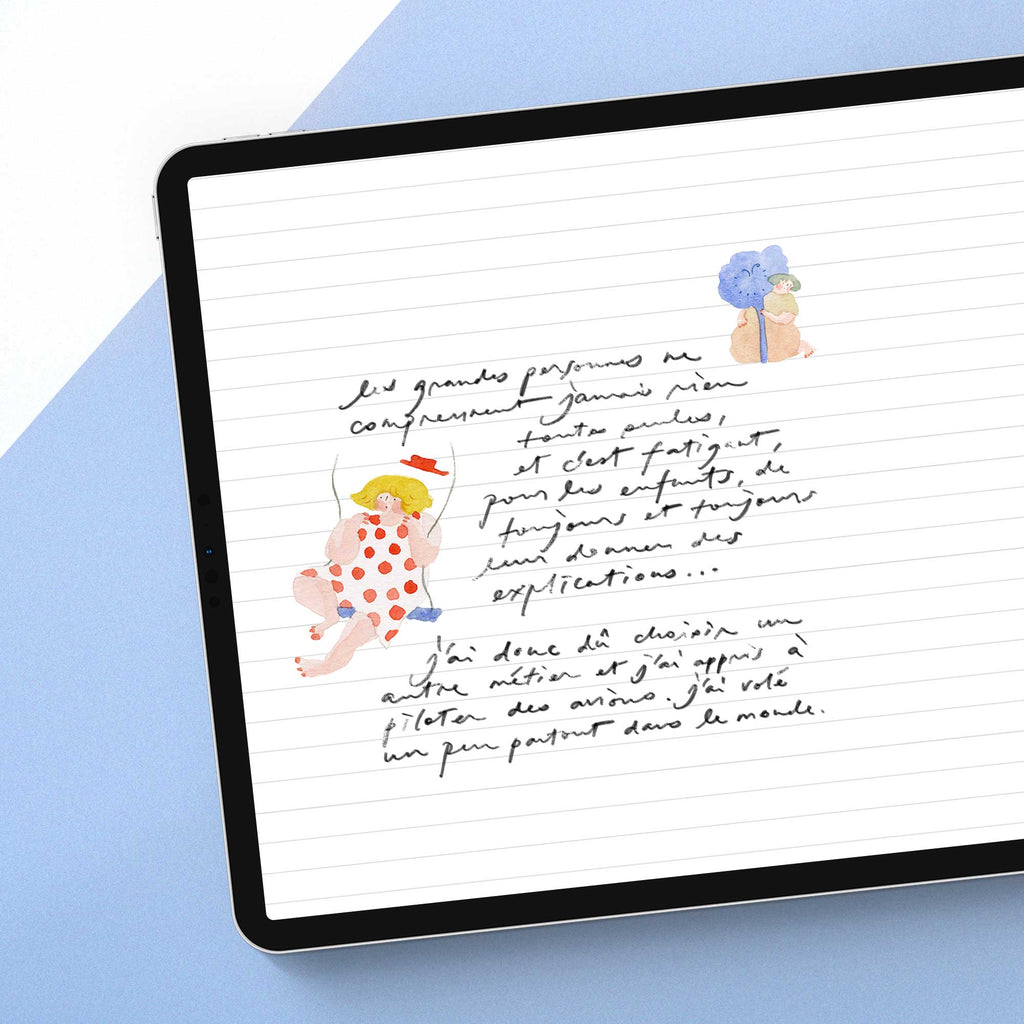 les grandes personnes ne
comprennent jamais rien
toutes seules,
et c'est fatigant,
pour les enfants, de
toujours et toujours
leur donner des
explications...
j'ai donc dû choisir un
autre métier et j'ai appris à
piloter des avions. j'ai volé
un peu partout dans le monde.